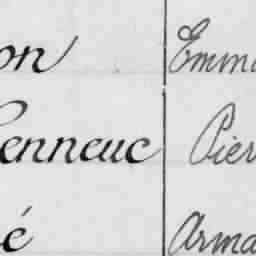 on Emma
enneuc Pier
é Arma